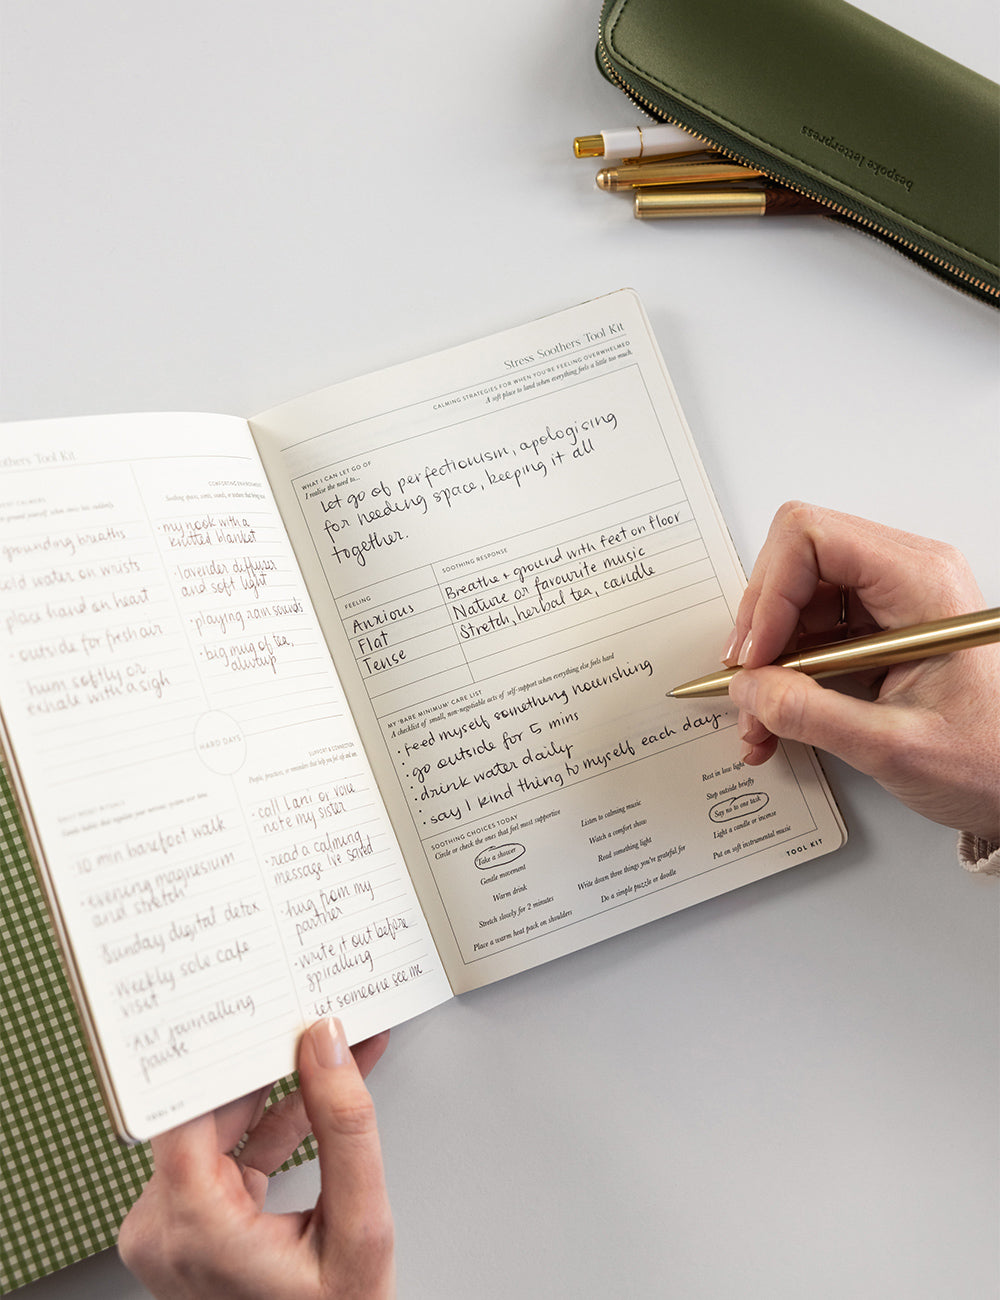 bespoke letterpress
Tool Kit
COMFORTING ENVIRONMENT
grounding breaths
cold water on wrists
place hand on heart
· outside for fresh air
· hum softly or
exhale with a sigh
· my nook with a
knitted blanket
· lavender diffuser
and soft light
· playing rain sounds
· big mug of tea,
HARD DAYS
SUPPORT & CONNECTION
People, practices, or reminders that help you feel safe and seen.
· 10 min barefoot walk
· evening magnesium
and stretch
Sunday digital detox
· Weekly solo cafe
visit
· AM journalling
pause
· call Lani or voice
note my sister
· read a calming
message I've saved
· hug from my
partner
· write it out before
spiralling
· let someone see me
Stress Soothers Tool Kit
CALMING STRATEGIES FOR WHEN YOU'RE FEELING OVERWHELMED
A soft place to land when everything feels a little too much.
WHAT I CAN LET GO OF
I realise the need to...
Let go of perfectionism, apologising
for needing space, keeping it all
together.
FEELING
SOOTHING RESPONSE
Anxious
Breathe + ground with feet on floor
Flat
Nature or favourite music
Tense
Stretch, herbal tea, candle
MY 'BARE MINIMUM' CARE LIST
A checklist of small, non-negotiable acts of self-support when everything else feels hard
· Feed myself something nourishing
· go outside for 5 mins
· drink water daily
· say 1 kind thing to myself each day.
SOOTHING CHOICES TODAY
Circle or check the ones that feel most supportive
Take a shower
Gentle movement
Warm drink
Stretch slowly for 2 minutes
Place a warm heat pack on shoulders
Listen to calming music
Watch a comfort show
Read something light
Write down three things you're grateful for
Do a simple puzzle or doodle
Rest in low light
Step outside briefly
Say no to one task
Light a candle or incense
Put on soft instrumental music
TOOL KIT